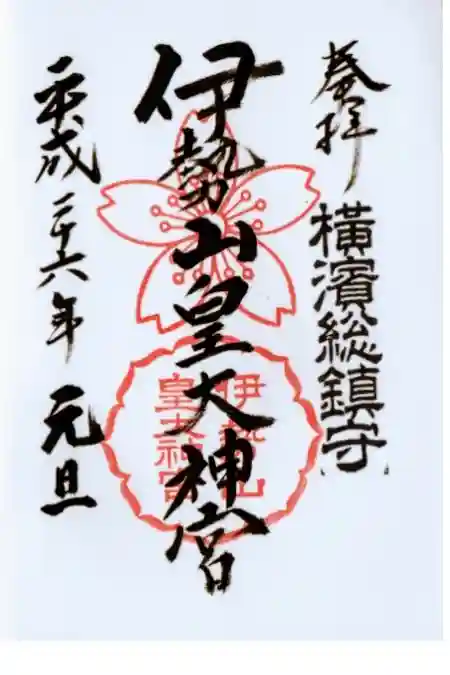 奉拝
横濱総鎮守
伊勢山皇大神宮
伊勢山
皇大神宮
平成二十六年元旦